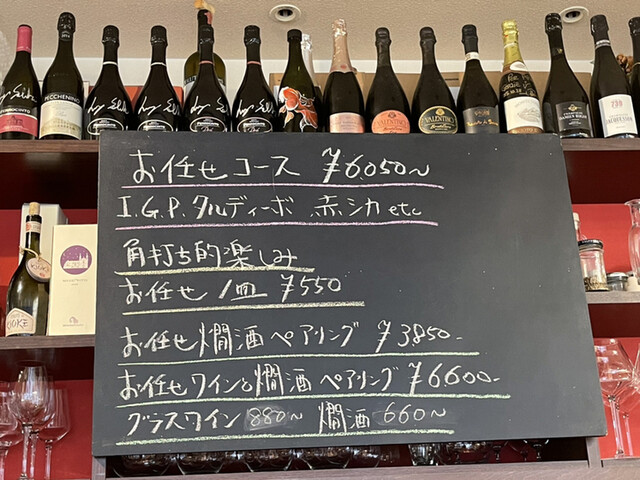 お任せコース ¥6.050〜
I.G.P. タルディーボ 赤シカ etc
角打ち的楽しみ
お任せ 1皿 ¥550
お任せ燗酒ペアリング ¥3850-
お任せワインと燗酒ペアリング ¥6600-
グラスワイン 880〜 燗酒 660〜
PECCHENINO
VALENTINO
VALENTINO